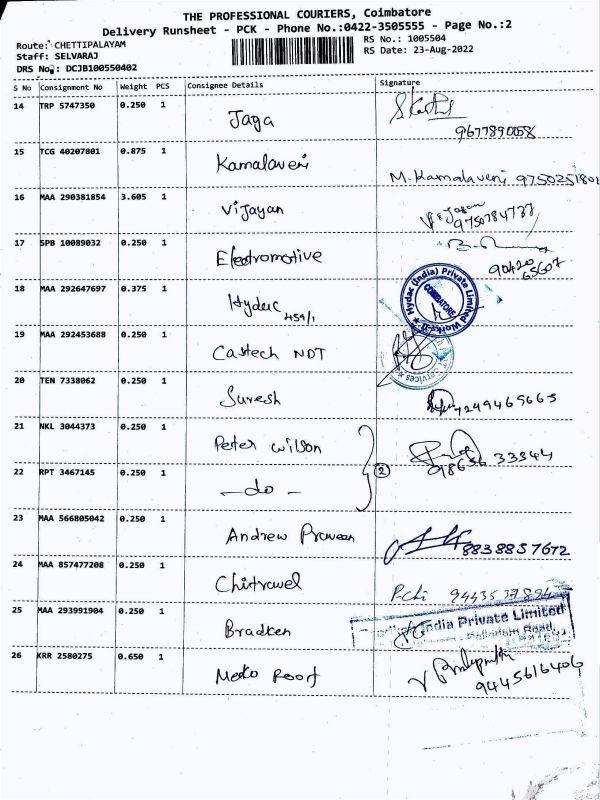 THE PROFESSIONAL COURIERS, Coimbatore
Delivery Runsheet - PCK - Phone No.:0422-3505555 - Page No.:2
Route: CHETTIPALAYAM RS No.: 1005504
Staff: SELVARAJ RS Date: 23-Aug-2022
DRS No.: DCJB100550402
S No Consignment No Weight PCS Consignee Details Signature
14 TRP 5747350 0.250 1 Jaga
9677890058
15 TCG 40207801 0.875 1 Kamalaveni M. Kamalaveni 9750251801
16 MAA 290381854 3.605 1 Vijayan Vijayan
9750784737
17 SPB 10089032 0.250 1 Electromotive
90420
65607
18 MAA 292647697 0.375 1 Hydac 459/1 Hydac (India) Private Limited
COIMBATORE
19 MAA 292453688 0.250 1 Castech NDT Services
20 TEN 7338062 0.250 1 Suresh 7249465665
21 NKL 3044373 0.250 1 Peter Wilson
98656 33344
22 RPT 3467145 0.250 1 - do - 2
23 MAA 566805042 0.250 1 Andrew Praveen 8838857672
24 MAA 857477208 0.250 1 Chitravel 9443537894
25 MAA 293991904 0.250 1 Bradken India Private Limited
Road,
26 KRR 2580275 0.650 1 Meko Roof
9445616406